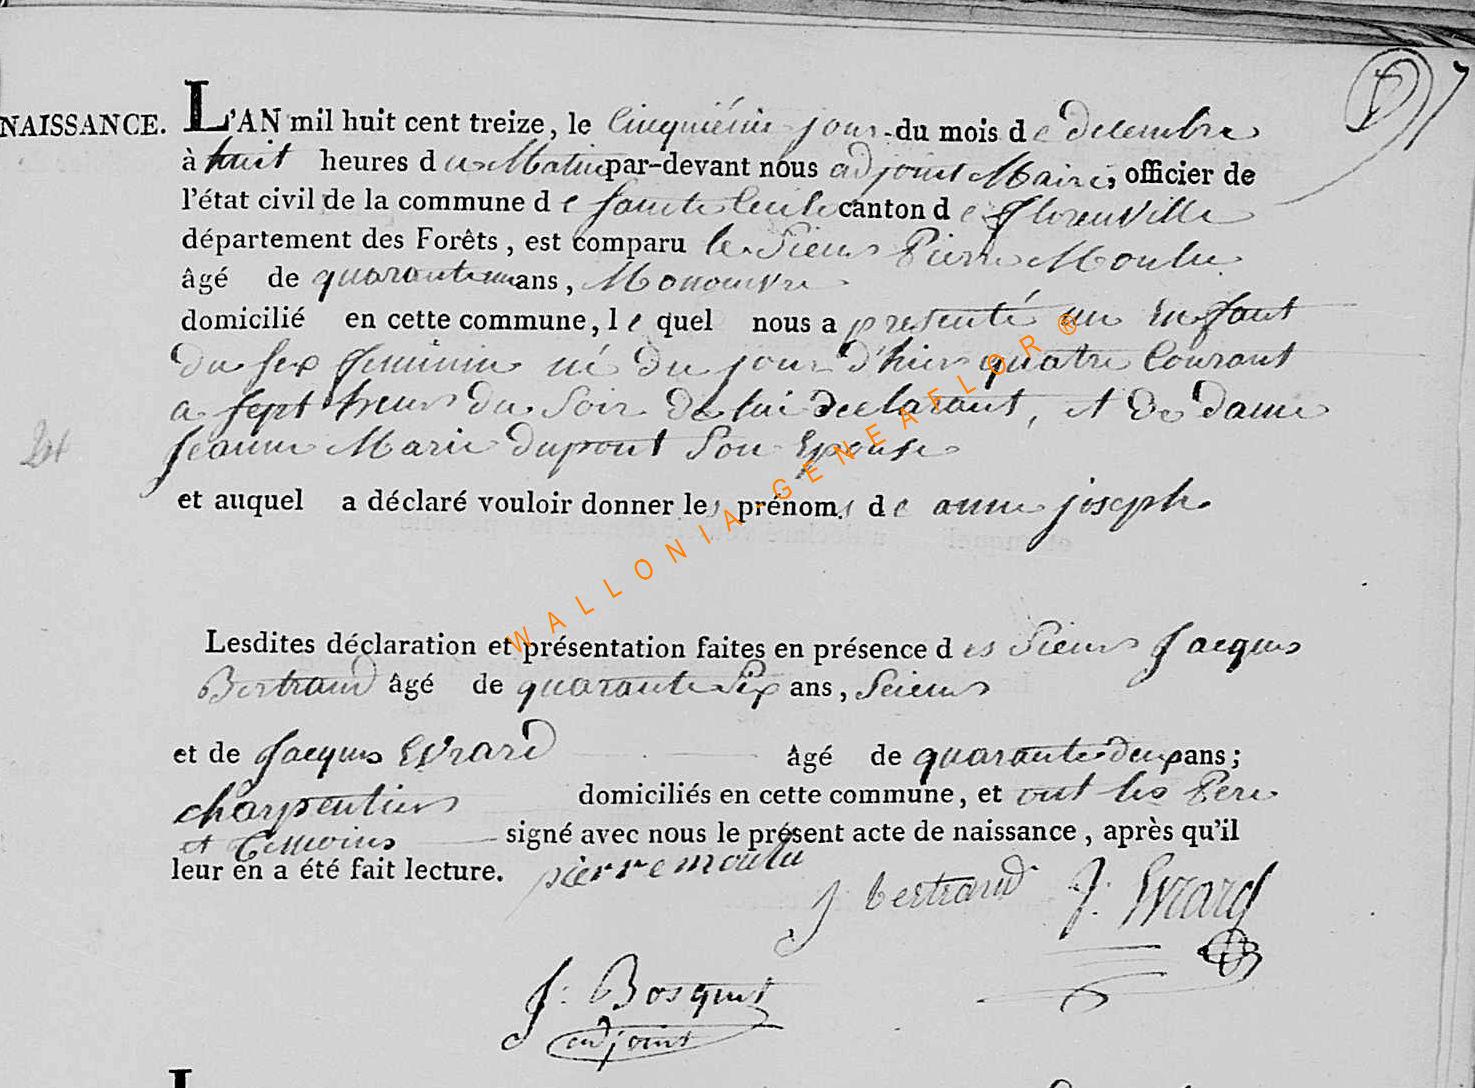 NAISSANCE. L'AN mil huit cent treize, le Cinquiéme jour du mois de decembre
à huit heures du Matin par-devant nous adjoint Maire, officier de
l'état civil de la commune de sainte Cecile canton de florenville
département des Forêts, est comparu le Sieur Pierre Moulu
âgé de quarante un ans, Monouvre
domicilié en cette commune, le quel nous a presenté un Enfant
du sex feminin né du jour d'hier quatre Courant
a sept heur du Soir de lui declarant, et de dame
Jeanne Marie dupont Son Epouse
et auquel a déclaré vouloir donner les prénoms de anne joseph.
Lesdites déclaration et présentation faites en présence des Sieurs Jacques
Bertrand âgé de quarante Six ans, Scieur
et de Jacques Evrard âgé de quarante deux ans;
charpentier domiciliés en cette commune, et ont les Pere
et temoins signé avec nous le présent acte de naissance, après qu'il
leur en a été fait lecture. pierre moulu
J bertrand J. Evrard
J: Bosquet
adjoint
WALLONIA-GENEAFLOR®